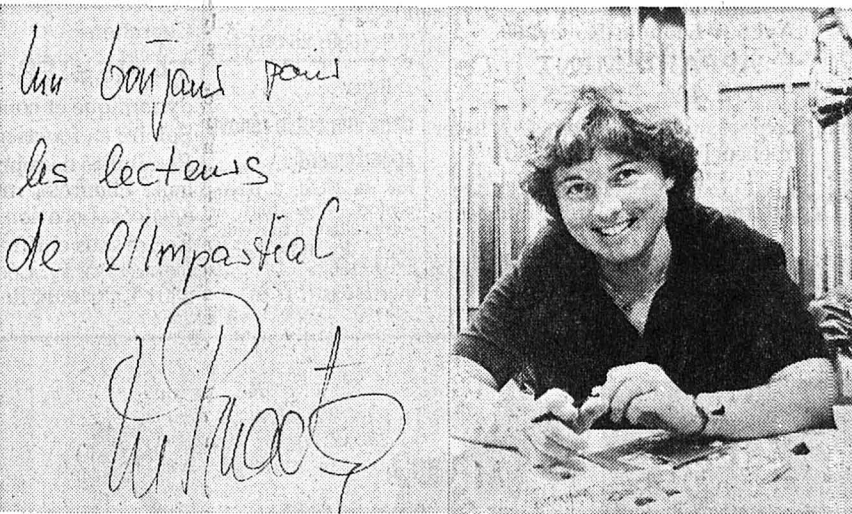 Un bonjour pour
les lecteurs
de l'Impartial